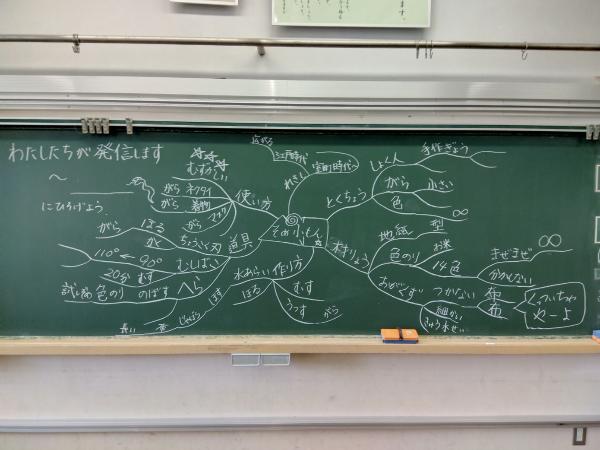 わたしたちが発信します
～
にひろげよう。
そめ小もん
れきし
室町時代～
江戸時代
広がる
とくちょう
しょく人
手作ぎょう
がら
小さい
色
∞
材りょう
地紙
型
色のり
お米
14色
まぜまぜ
∞
おがくず
つかない
布
布
くっついちゃやーよ
細かい
きゅう水せい
作り方
むす
がら
うつす
ほる
水あらい
ほす
じゃばら
長い
道具
へら
のばす
色のり
むしばこ
むす
20分
90°
110°
ちょうこく刃
ほる
がら
使い方
むずかしい
ネクタイ
がら
着物
がら
がら